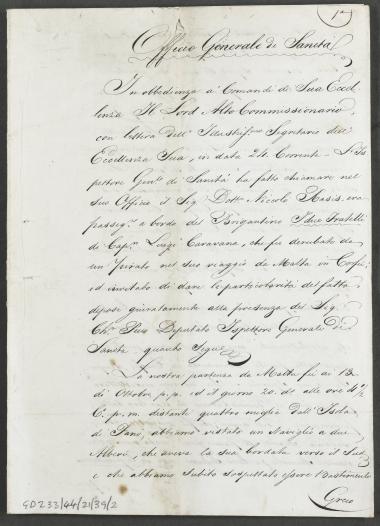 1
Officio Generale di Sanità
In obbedienza a' Comandi di Sua Eccel-
lenza Il Lord Alto Commissionario,
con lettera dell' Segretario dell'
Eccellenza Sua, in data 24 Corrente L'Is-
pettore Gen.le di Sanità ha fatto chiamare nel
suo Officio il Sig. Dott. Nicolò era
passeg.ro a bordo del Brigantino I due Fratelli
di Cap.n Luigi Caravana, che fu derubato da
un Pirato nel suo viaggio da Malta in Corfù;
ed invitato di dare le particolarità del fatto,
depose giuratamente alla presenza del Sig.
Deputato Ispettore Generale di
Sanità quanto Segue
La nostra partenza da Malta fu ai 13
di Ottobre p.p. ed il giorno 20. do alle ore 4½
p.m. distanti quattro miglia dall' Isola
di Fanò, abbiamo vistato un Naviglio a due
Alberi, che aveva la sua bordata verso il Sud
e che abbiamo subito sospettato essere Bastimento
Greco
GD233/44/21/39/2